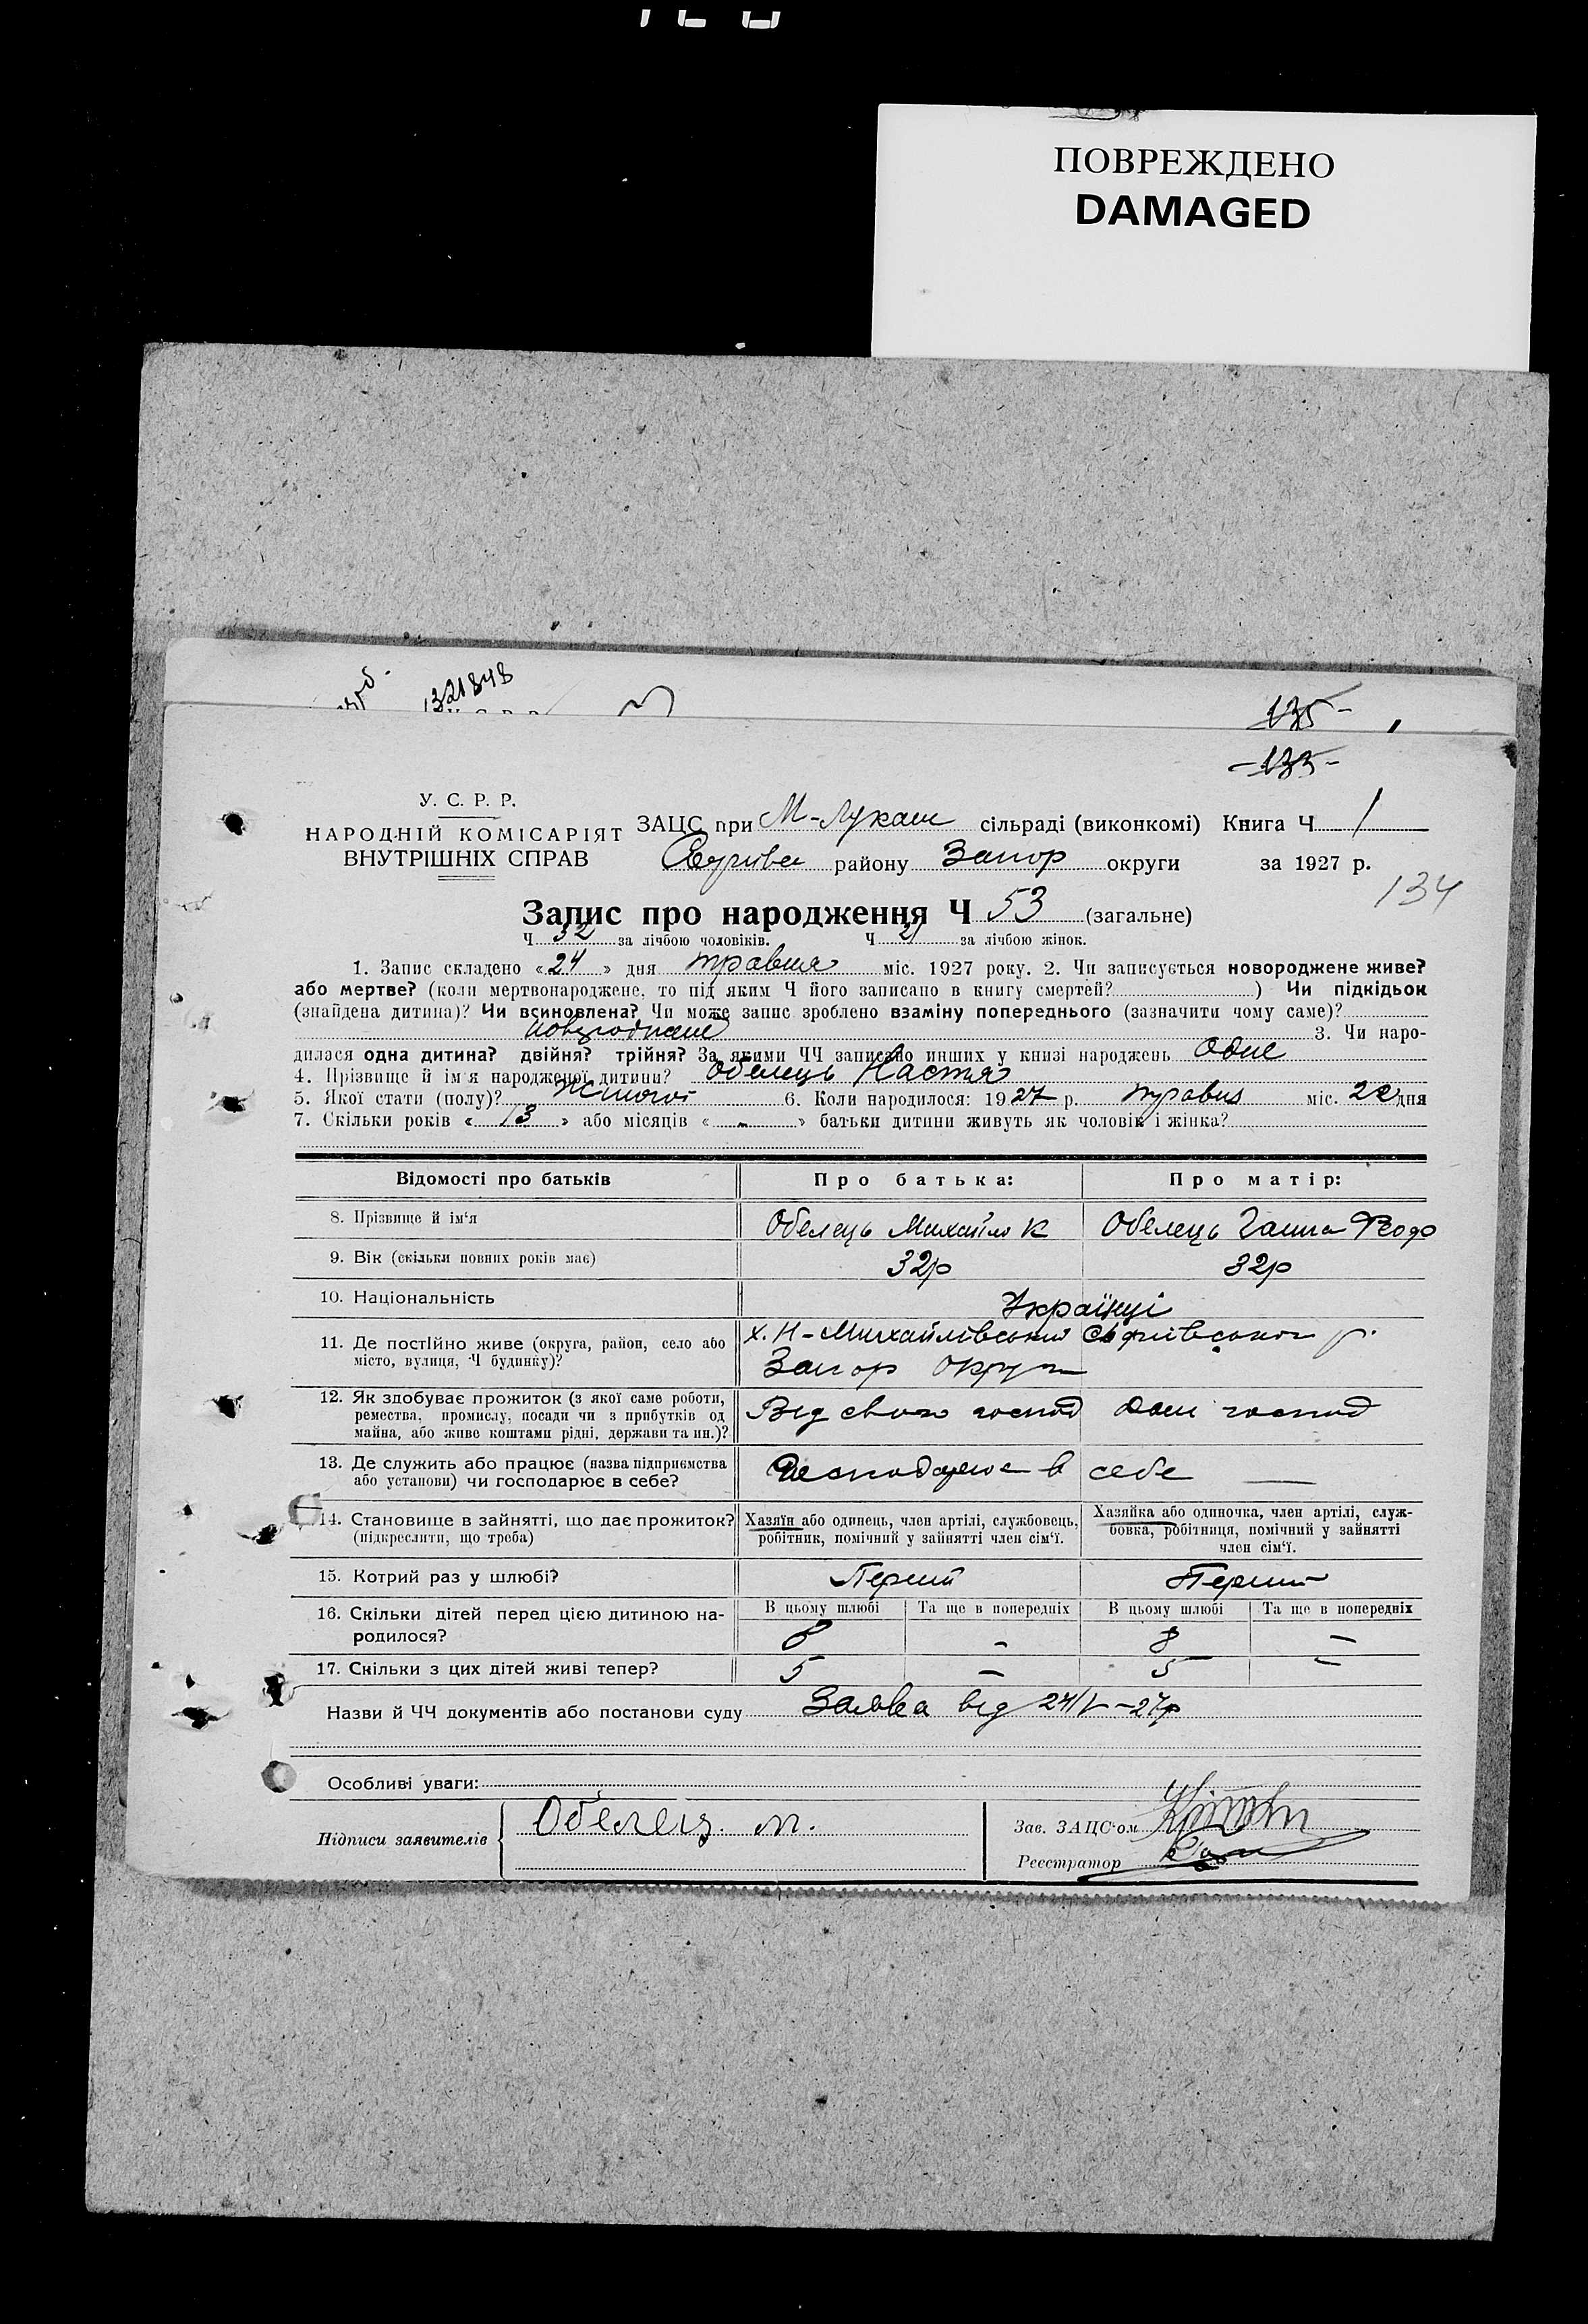 ПОВРЕЖДЕНО
DAMAGED
1321848
135-
-135-
У. С. Р. Р.
НАРОДНІЙ КОМІСАРІЯТ
ВНУТРІШНІХ СПРАВ
ЗАЦС при М-Лукаш сільраді (виконкомі) Книга Ч 1
району Запор округи за 1927 р.
134
Запис про народження Ч 53 (загальне)
Ч 32 за лічбою чоловіків. Ч 21 за лічбою жінок.
1. Запис складено «24» дня травня міс. 1927 року. 2. Чи записується новороджене живе?
або мертве? (коли мертвонароджене, то під яким Ч його записано в книгу смертей? ) Чи підкідьок
(знайдена дитина)? Чи всиновлена? Чи може запис зроблено взаміну попереднього (зазначити чому саме)?
3. Чи наро-
дилася одна дитина? двійня? трійня? За якими ЧЧ записано инших у книзі народжень Одне
4. Прізвище й ім'я народженої дитини? Обелець Настя
5. Якої стати (полу)? 6. Коли народилося: 1927 р. травня міс. 22 дня
7. Скільки років «13» або місяців «-» батьки дитини живуть як чоловік і жінка?
Відомості про батьків Про батька: Про матір:
8. Прізвище й ім'я Обелець Михайло К Обелець Ганна Федо
9. Вік (скільки повних років має) 32р 32р
10. Національність Українці
11. Де постійно живе (округа, район, село або
місто, вулиця, Ч будинку)?
х. Н-Михайлівський р.
Запор округи
12. Як здобуває прожиток (з якої саме роботи,
ремества, промислу, посади чи з прибутків од
майна, або живе коштами рідні, держави та ин.)?
Від свого господ Дом господ
13. Де служить або працює (назва підприємства
або установи) чи господарює в себе?
Господарює в себе —
14. Становище в зайнятті, що дає прожиток?
(підкреслити, що треба)
Хазяїн або одинець, член артілі, службовець,
робітник, помічний у зайнятті член сім'ї.
Хазяйка або одиночка, член артілі, служ-
бовка, робітниця, помічний у зайнятті
член сім'ї.
15. Котрий раз у шлюбі? Перший Перший
16. Скільки дітей перед цією дитиною на-
родилося?
В цьому шлюбі Та ще в попередніх В цьому шлюбі Та ще в попередніх
8 - 8 -
17. Скільки з цих дітей живі тепер? 5 - 5 -
Назви й ЧЧ документів або постанови суду Заява від 24/V-27р
Особливі уваги:
Підписи заявителів Обелець. М.
Зав. ЗАЦС'ом
Реєстратор